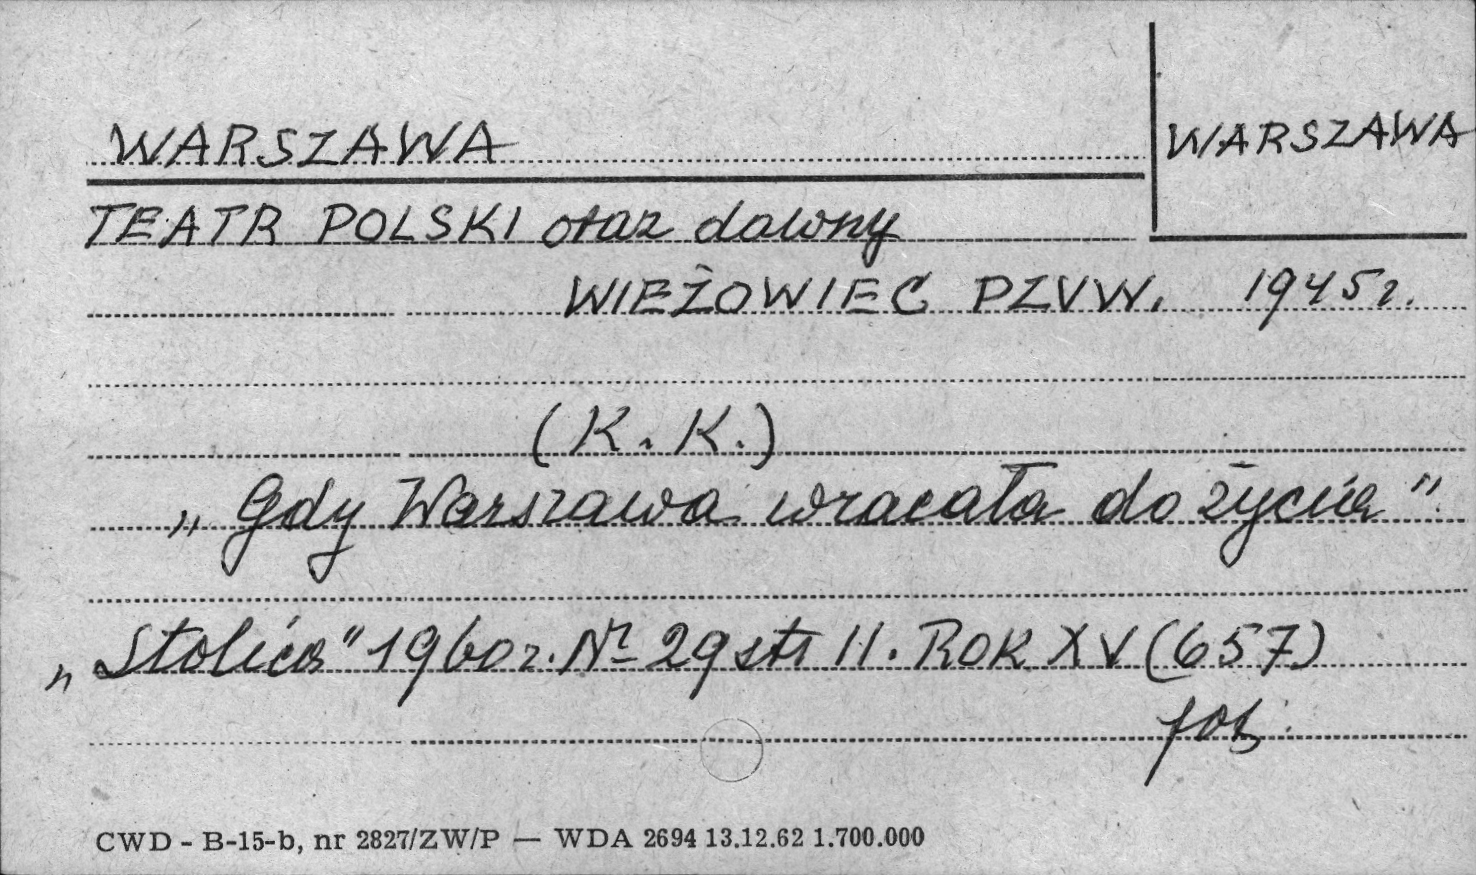 WARSZAWA
WARSZAWA
TEATR POLSKI oraz dawny
WIEŻOWIEC PZUW. 1945 r.
(K. K.)
„Gdy Warszawa wracała do życia”
„Stolica” 1960 r. Nr 29 str 11. ROK XV (657)
fot.
CWD - B-15-b, nr 2827/ZW/P — WDA 2694 13.12.62 1.700.000